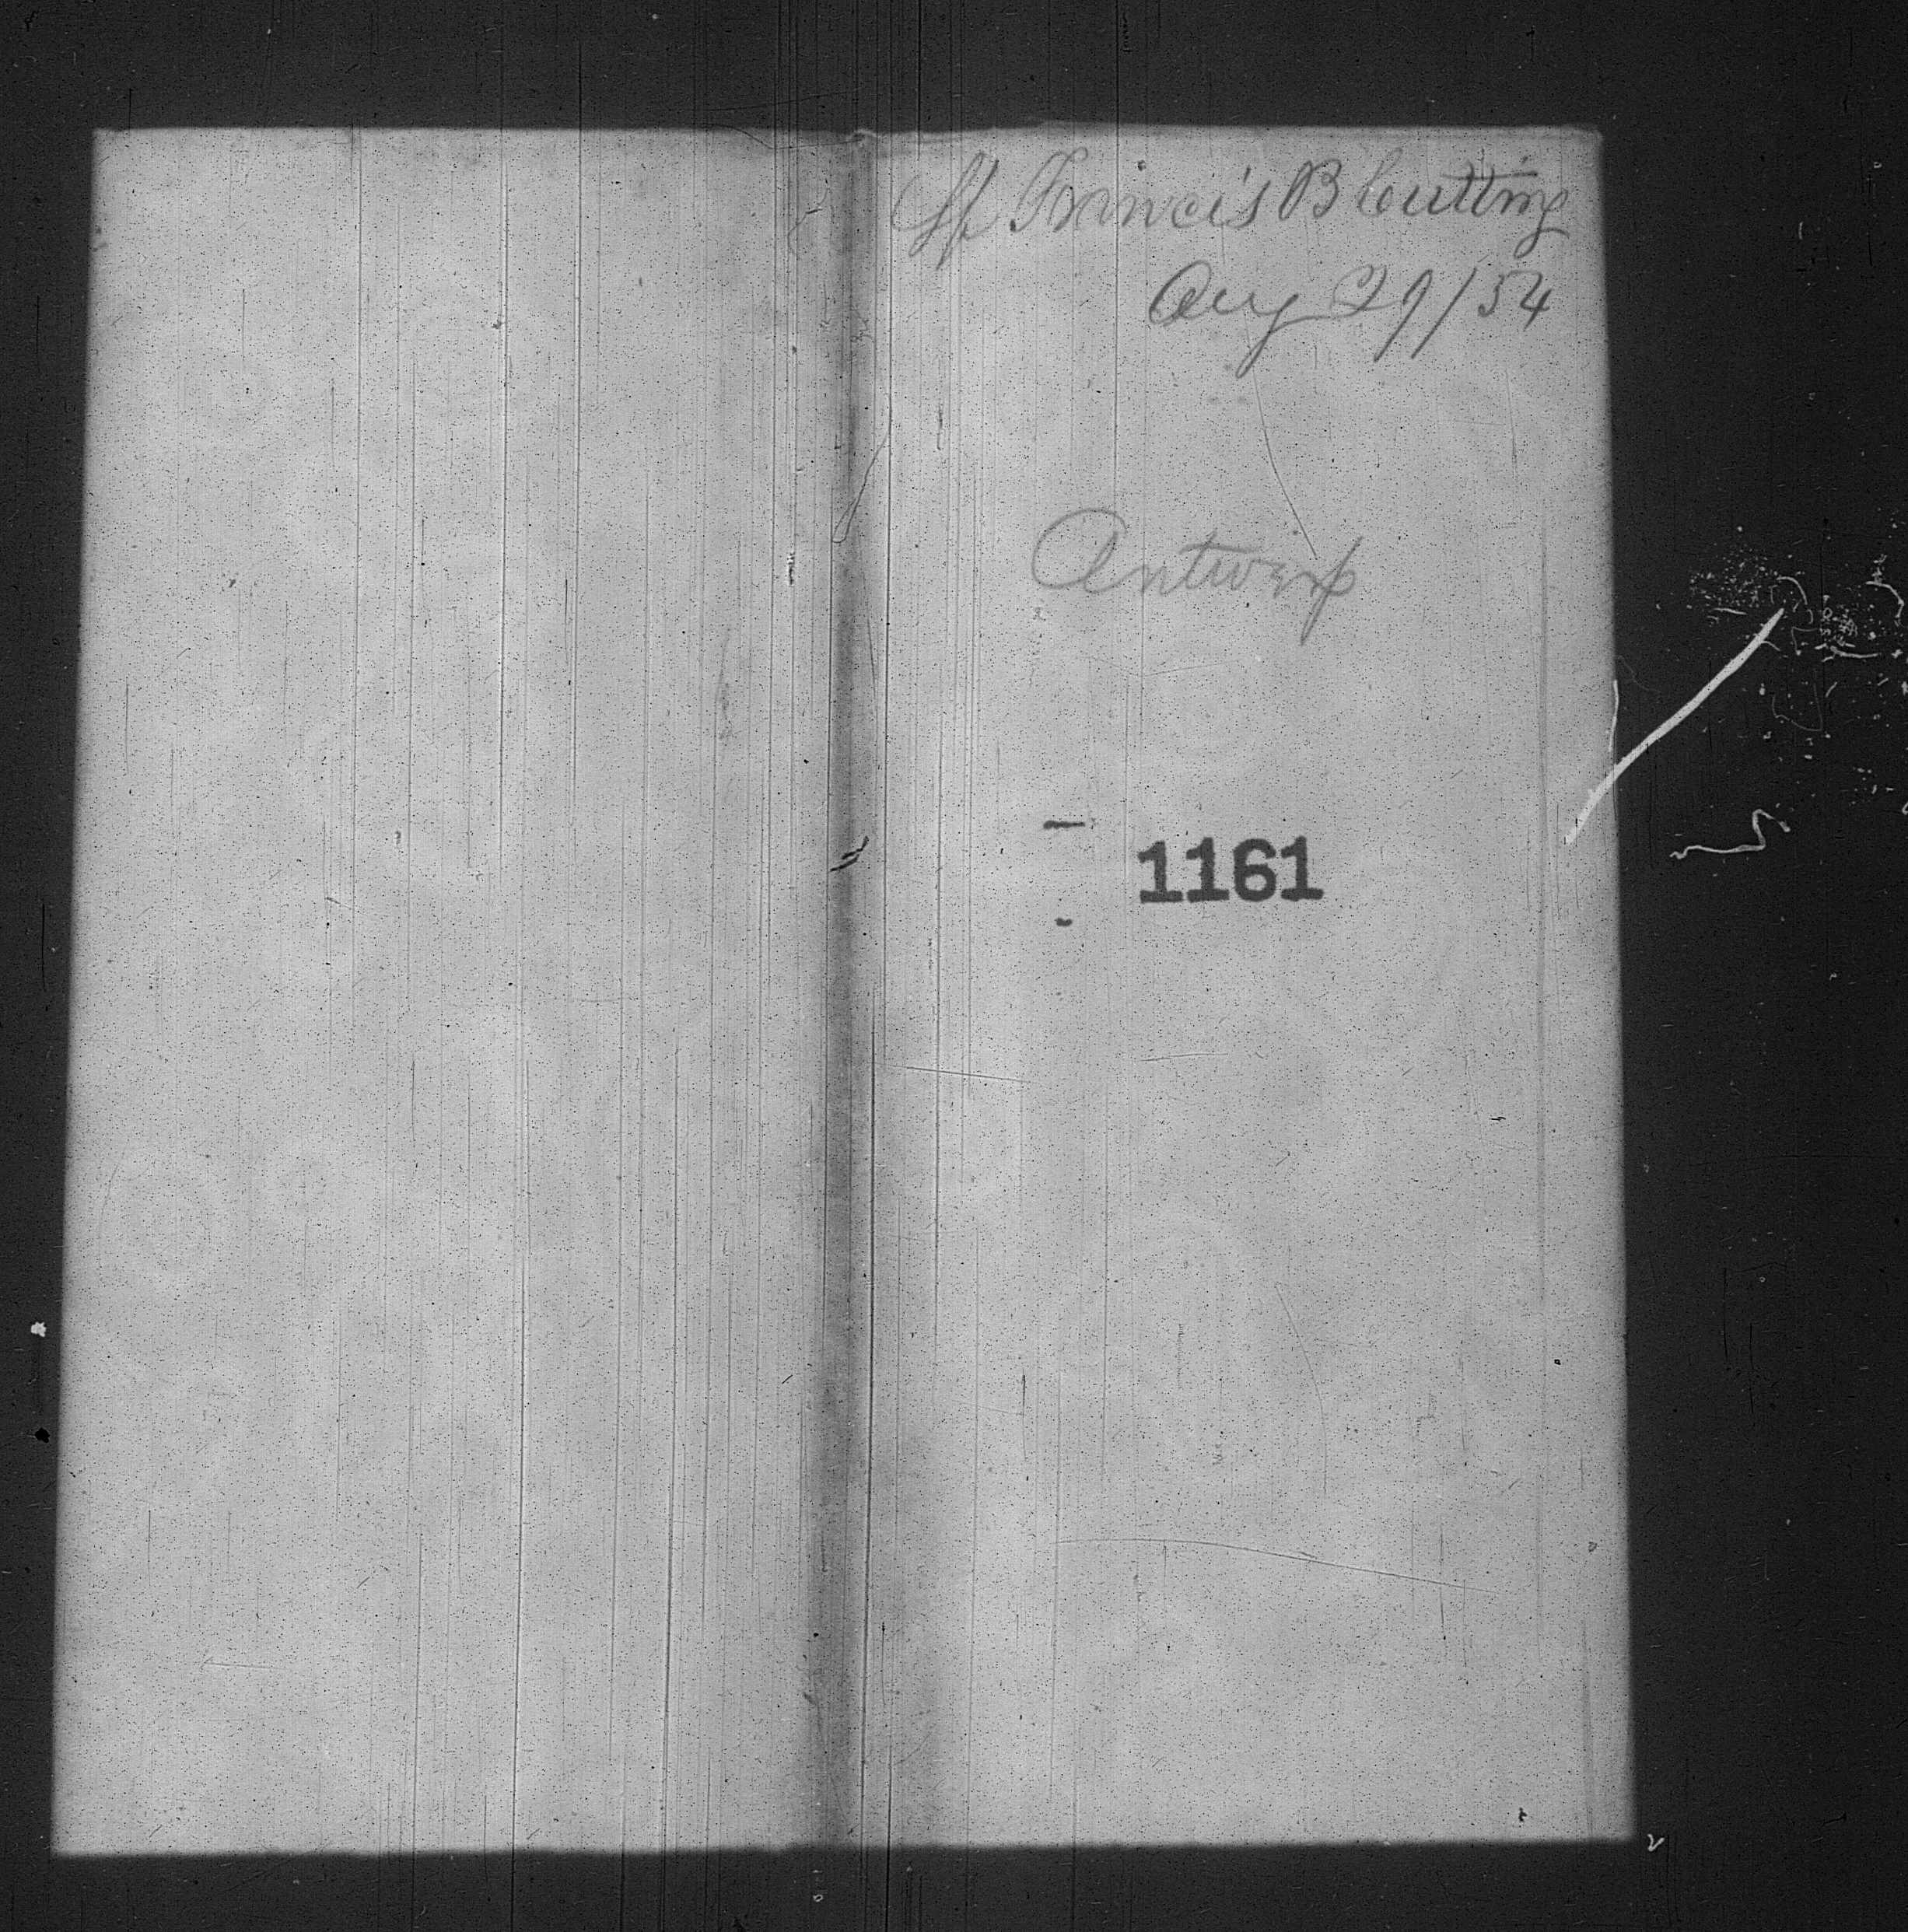 Sp Francis B Cutting
Aug 29/54
Antwerp
1161